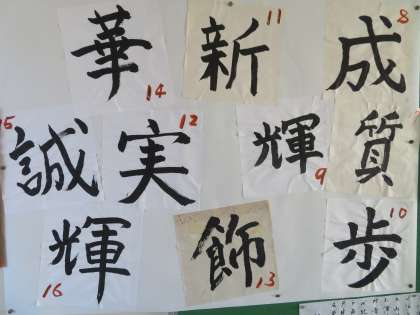 華 新 成
14 11 8
誠 実 輝 質
15 12 9
輝 飾 歩
16 13 10